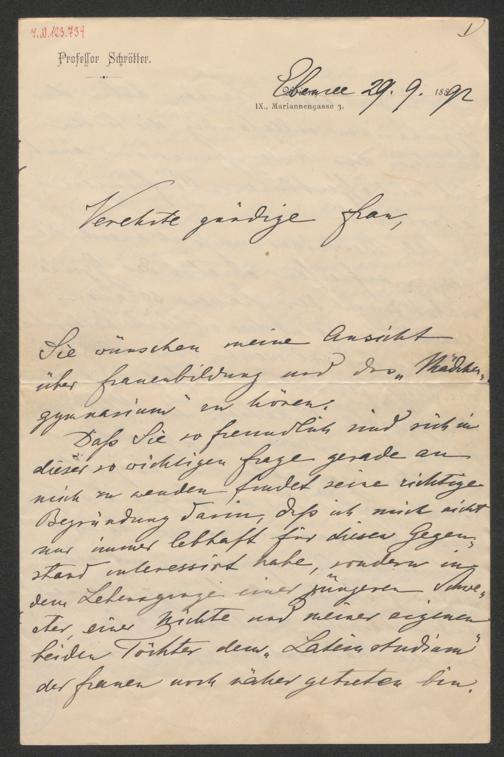 I.N. 123.734
1)
Professor Schrötter.
Ebensee 29. 9. 1892
IX., Mariannengasse 3.
Verehrte gnädige Frau,
Sie wünschen meine Ansicht
über Frauenbildung und das „Mädchen-
gymnasium" zu hören.
Daß Sie so freundlich sind sich in
dieser so wichtigen Frage gerade an
mich zu wenden findet seine richtige
Begründung darin, daß ich mich nicht
nur immer lebhaft für diesen Gegen-
stand interessirt habe, sondern in
dem Lebensgange einer jüngeren Schwe-
ster, einer Nichte und meiner eigenen
beiden Töchter dem „Lateinstudium"
der Frauen noch näher getreten bin.